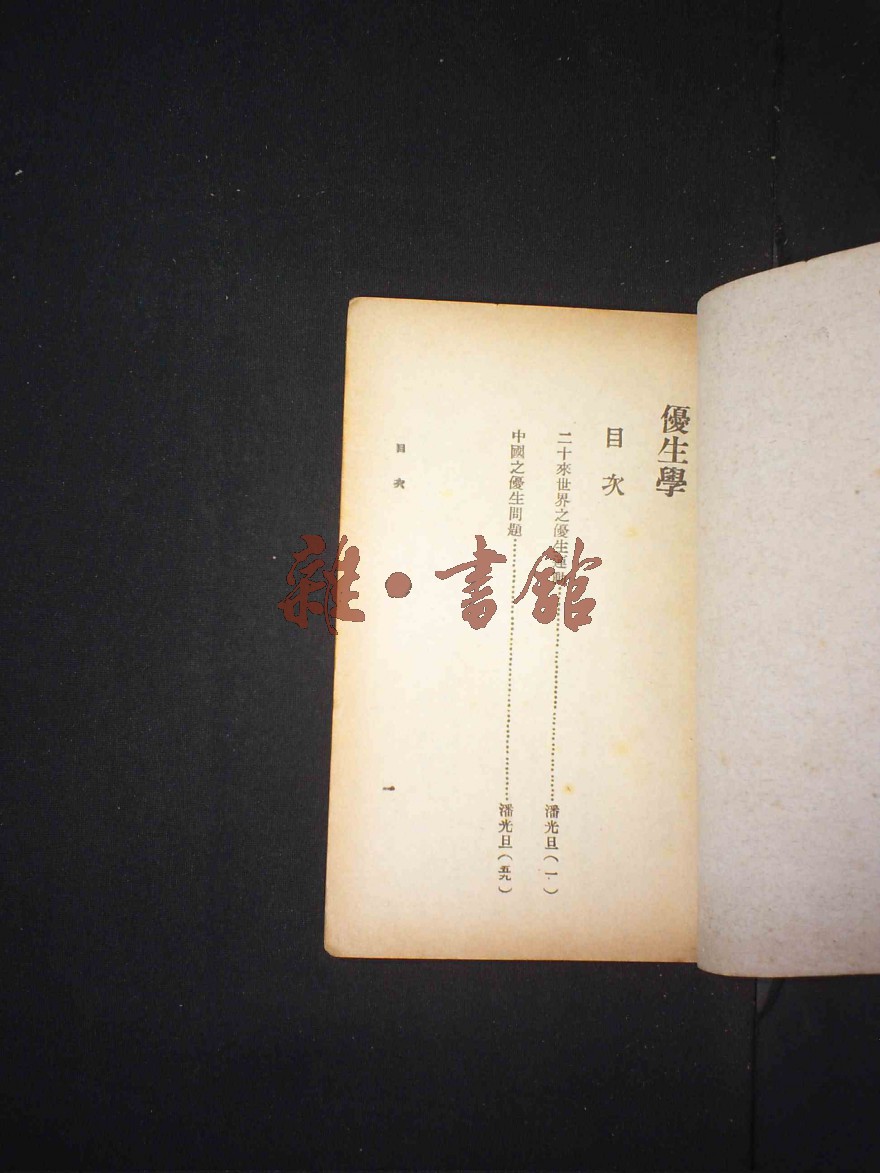 優生學
目次
二十來世界之優生運動……潘光旦（一）
中國之優生問題……潘光旦（五九）
目次
一
雜·書館